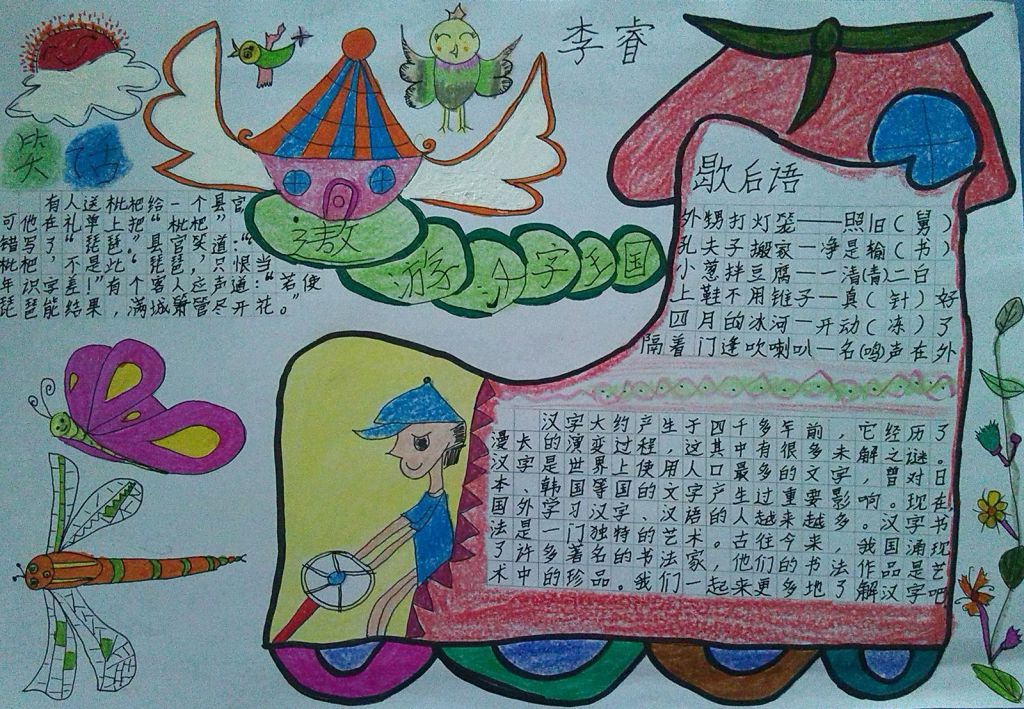 李睿
笑话
有人送枇杷给一个县官
可他在礼单上把“枇杷”
错写了“琵琶”县官笑道:“
枇杷,不是此“琵琶,只恨当
年识字差!”有个客人应声道:“若使
琵琶能结果,满城箫管尽开花。”
遨游汉字王国
歇后语
外甥打灯笼——照旧(舅)
孔夫子搬家—净是输(书)
小葱拌豆腐—一清(青)二白
上鞋不用锥子—真(针)好
四月的冰河—开动(冻)了
隔着门逢吹喇叭—名(鸣)声在外
汉字大约产生于四千多年前,它经历了
漫长的演变过程,这其中有很多未解之谜。
汉字是世界上使用人口最多的文字,曾对日
本、韩国等国的文字产生过重要影响。现在
国外学习汉字、汉语的人越来越多。汉字书
法是一门独特的艺术。古往今来,我国涌现
了许多著名的书法家,他们的书法作品是艺
术中的珍品。我们一起来更多地了解汉字吧